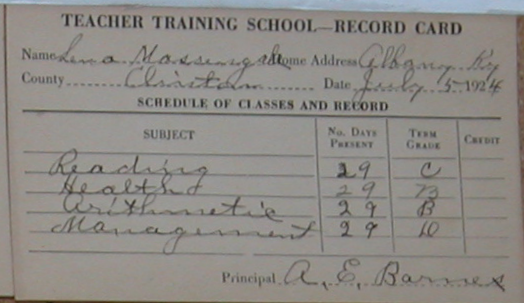 TEACHER TRAINING SCHOOL—RECORD CARD
Name Lena Massengale Home Address Albany Ky
County Clinton Date July 5 1924
SCHEDULE OF CLASSES AND RECORD
SUBJECT No. DAYS PRESENT TERM GRADE CREDIT
Reading 29 C
Health 29 B
Arithmetic 29 B
Management 29 D
Principal A. E. Barnes